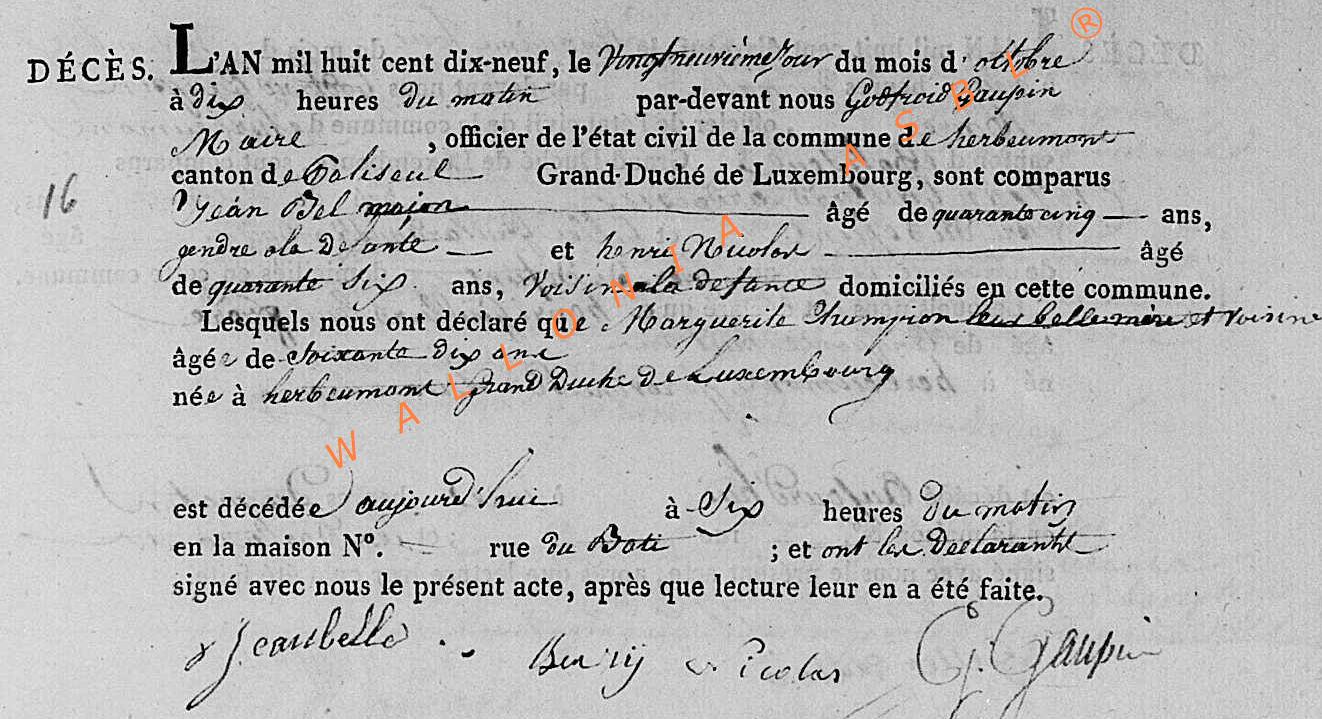 DÉCÈS. L'AN mil huit cent dix-neuf, le Vingtneuvième Jour du mois d'octobre
à dix heures du matin par-devant nous Godfroid Gaupin
Maire , officier de l'état civil de la commune de herbeumont
canton de Paliseul Grand-Duché de Luxembourg, sont comparus
16
Jean Bel maçon âgé de quarante cinq ans,
gendre a la defante et henri Nicolas âgé
de quarante six ans, Voisin a la defante domiciliés en cette commune.
Lesquels nous ont déclaré que Marguerite leur belle mère et voisine
âgée de soixante dix ans
née à herbeumont grand Duché de Luxembourg
est décédée aujourd'hui à Six heures du matin
en la maison N°. rue du ; et ont les Declarants
signé avec nous le présent acte, après que lecture leur en a été faite.
Jean belle Henrij Nicolas G. Gaupin
WALLONIA ASBL ®